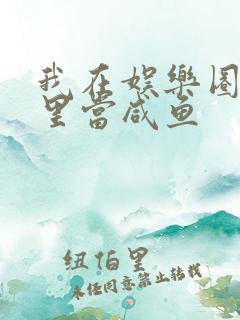 我在娱樂圈
里當咸鱼
纽怕里
未经同意禁止转载